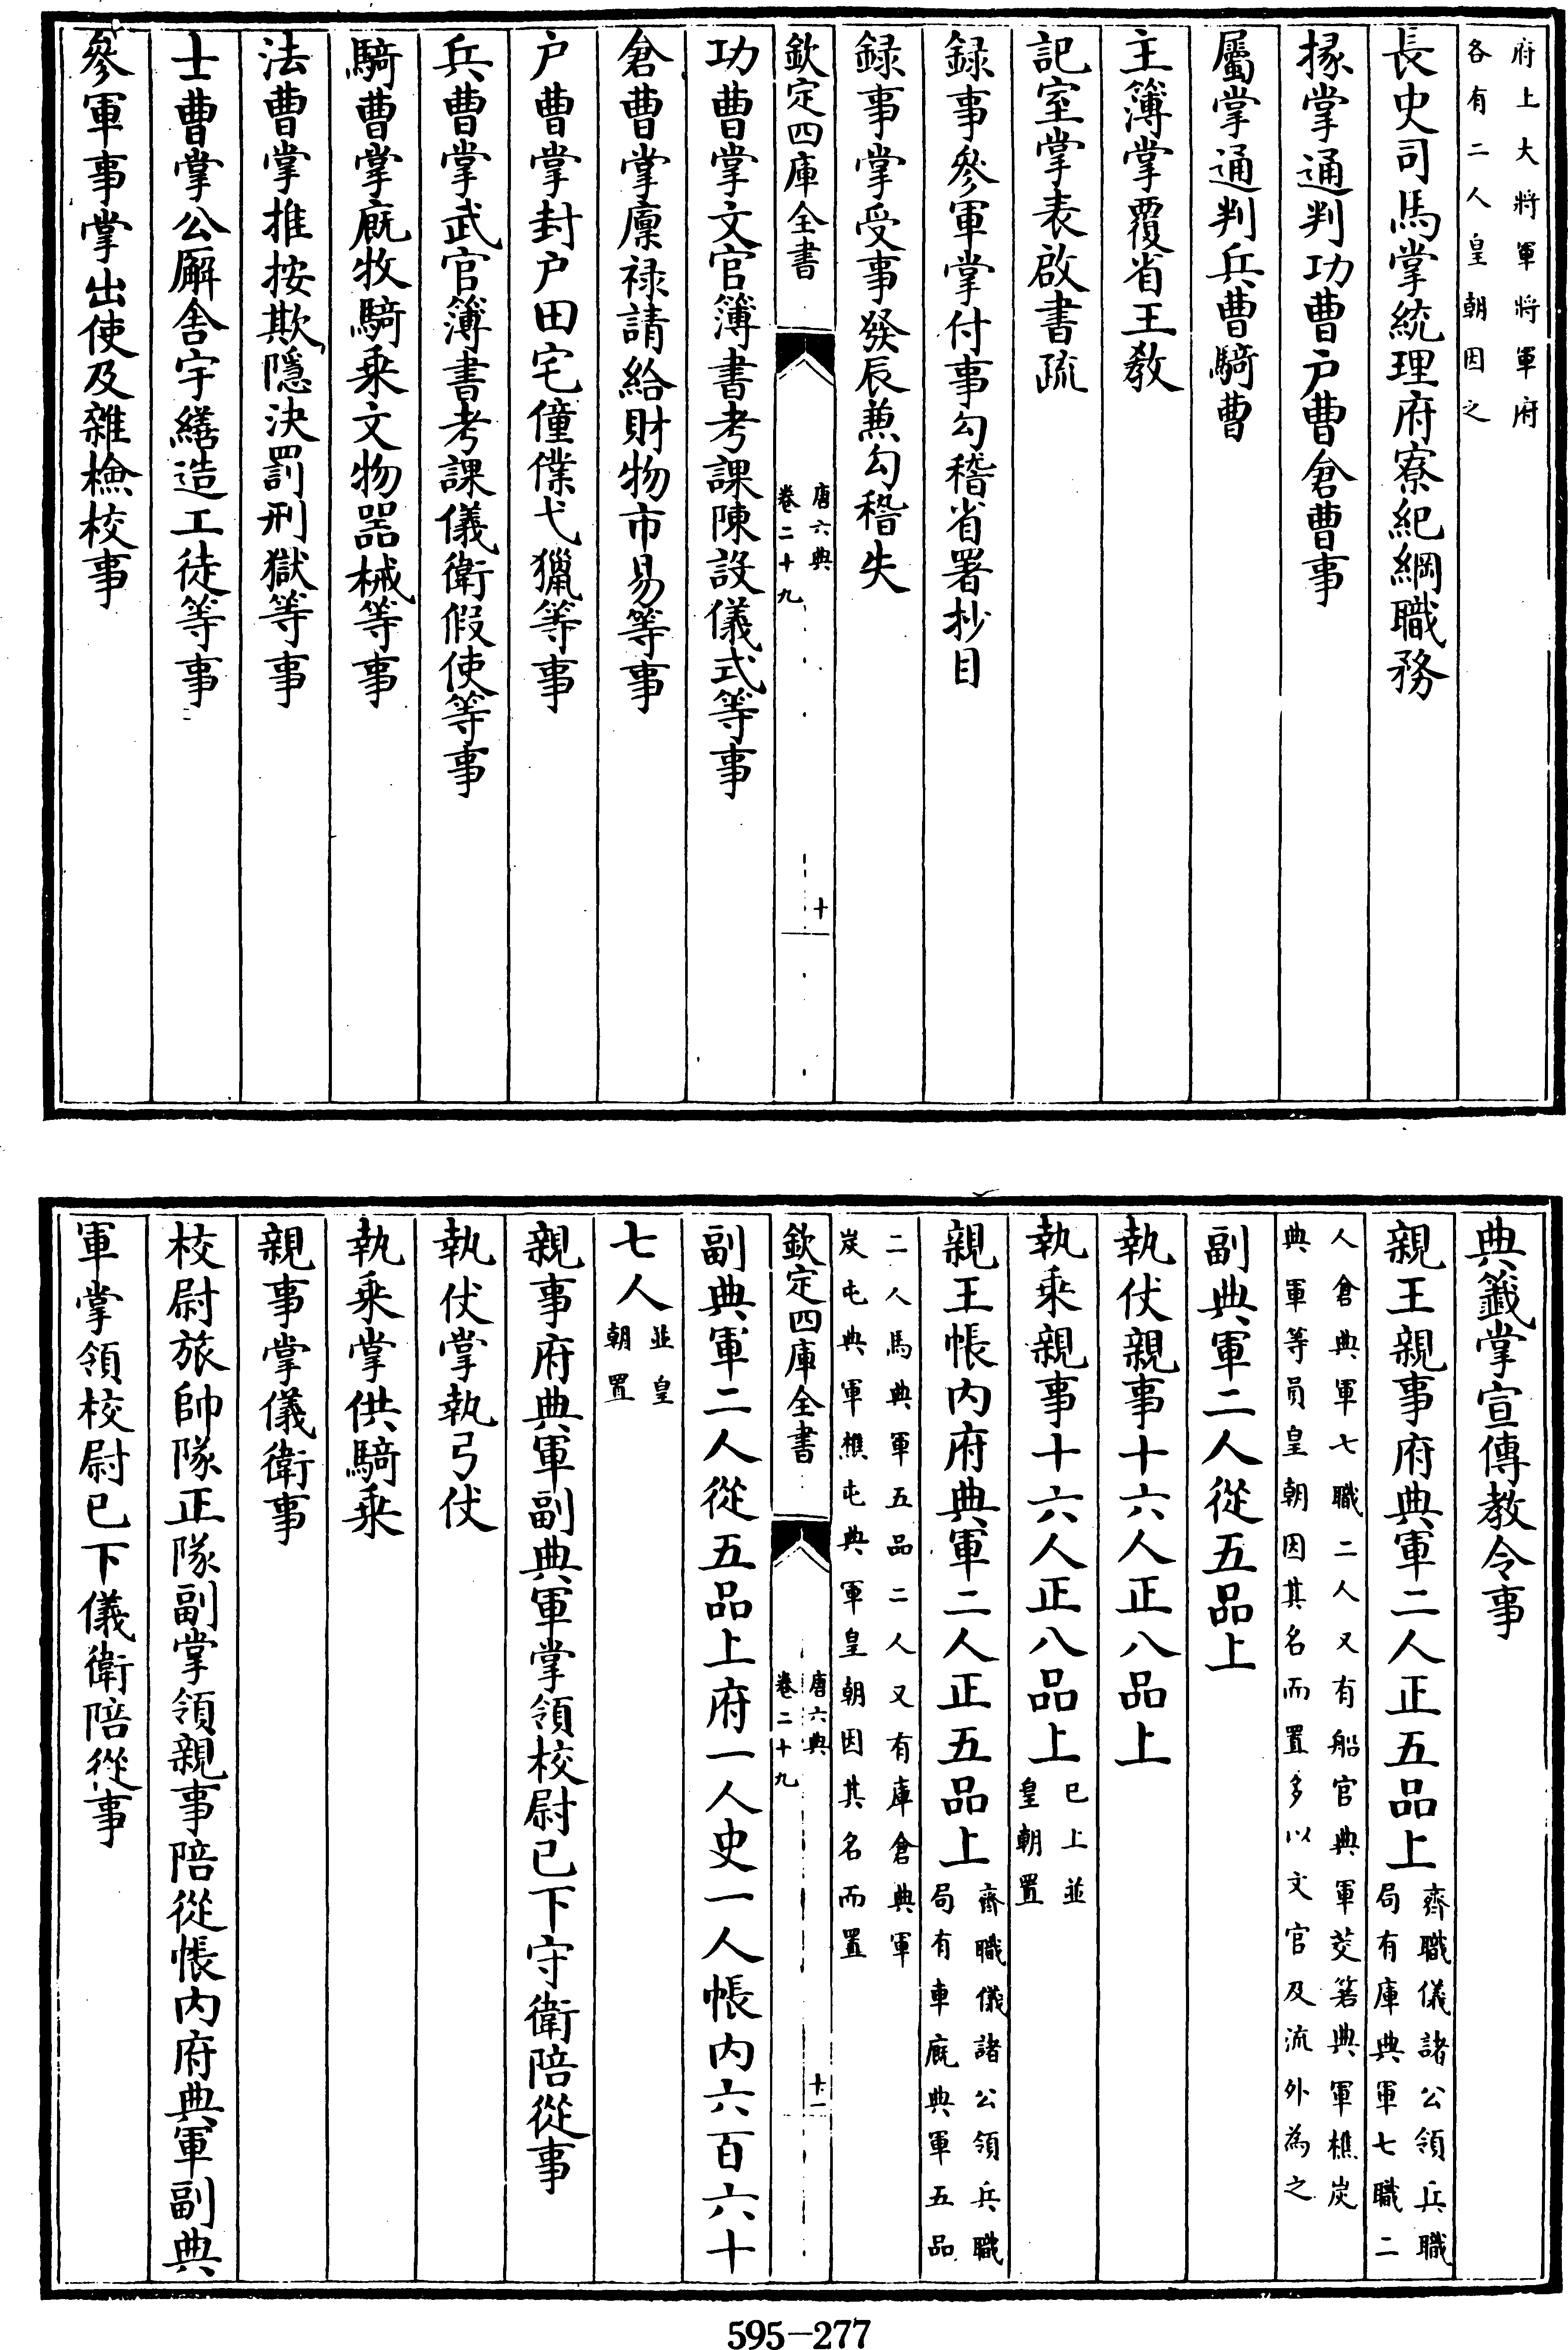 府上大將軍將軍府
各有二人皇朝因之
長史司馬掌統理府寮紀綱職務
掾掌通判功曹户曹倉曹事
屬掌通判兵曹騎曹
主簿掌覆省王教
記室掌表啟書疏
録事參軍掌付事勾稽省署抄目
録事掌受事發辰兼勾稽失
欽定四庫全書
唐六典
卷二十九
十
功曹掌文官簿書考課陳設儀式等事
倉曹掌廩禄請給財物市易等事
户曹掌封户田宅僮僕弋獵等事
兵曹掌武官簿書考課儀衛假使等事
騎曹掌廐牧騎乘文物器械等事
法曹掌推按欺隱決罰刑獄等事
士曹掌公廨舍宇繕造工徒等事
參軍事掌出使及雜檢校事
典籤掌宣傳教令事
親王親事府典軍二人正五品上
齊職儀諸公領兵職
局有庫典軍七職二
人倉典軍七職二人又有船官典軍茭箬典軍樵炭
典軍等員皇朝因其名而置多以文官及流外為之
副典軍二人從五品上
執仗親事十六人正八品上
執乘親事十六人正八品上
已上並
皇朝置
親王帳内府典軍二人正五品上
齊職儀諸公領兵職
局有車廐典軍五品
二人馬典軍五品二人又有庫倉典軍
炭屯典軍樵屯典軍皇朝因其名而置
欽定四庫全書
唐六典
卷二十九
十一
副典軍二人從五品上府一人史一人帳内六百六十
七人
並皇
朝置
親事府典軍副典軍掌領校尉已下守衛陪從事
執仗掌執弓仗
執乘掌供騎乘
親事掌儀衛事
校尉旅帥隊正隊副掌領親事陪從帳内府典軍副典
軍掌領校尉已下儀衛陪從事
595-277